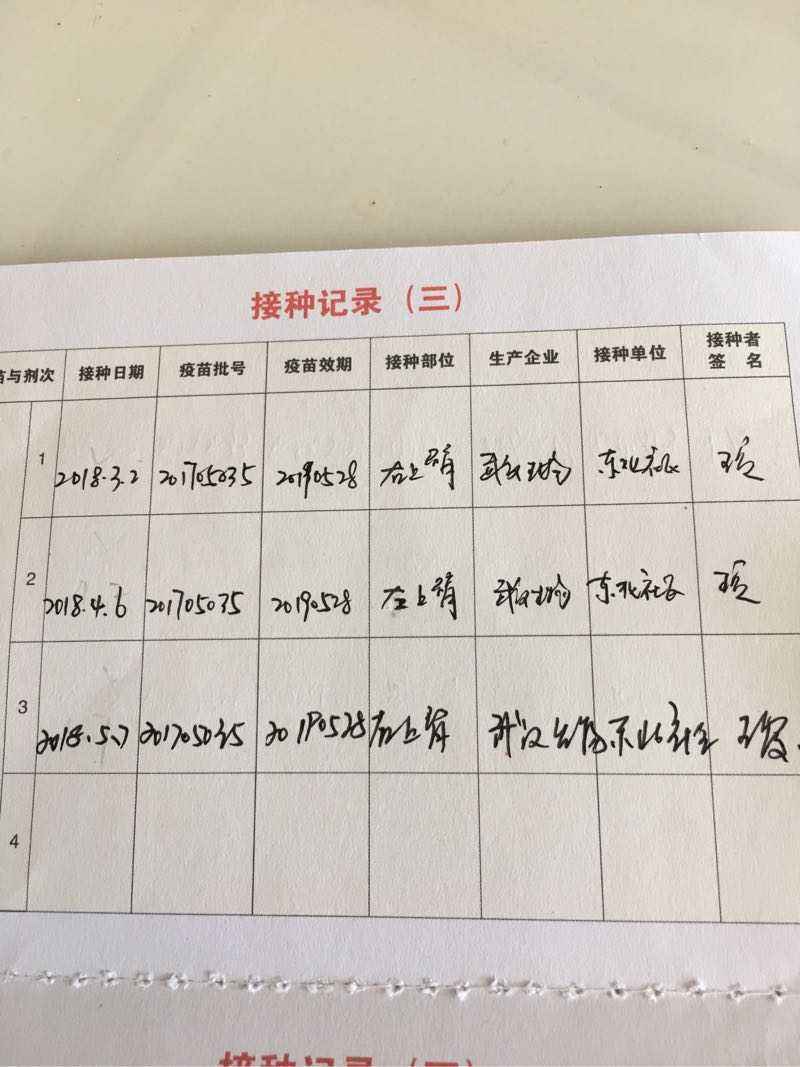 接种记录（三）
苗与剂次 接种日期 疫苗批号 疫苗效期 接种部位 生产企业 接种单位 接种者
签 名
1 2018.3.2 201705035 20190528 右上臂 武汉生物 东北社区
2 2018.4.6 201705035 20190528 左上臂 武汉生物 东北社区
3 2018.5.7 201705035 20190528 右上臂 武汉生物 东北社区
4
接种记录